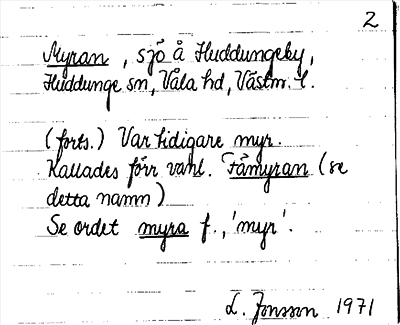 2
Myran, sjö å Huddungeby,
Huddunge sn, Våla hd, Västm. l.
(forts.) Var tidigare myr.
Kallades förr vanl. Fåmyran (se
detta namn)
Se ordet myra f., 'myr'.
L. Jonsson 1971